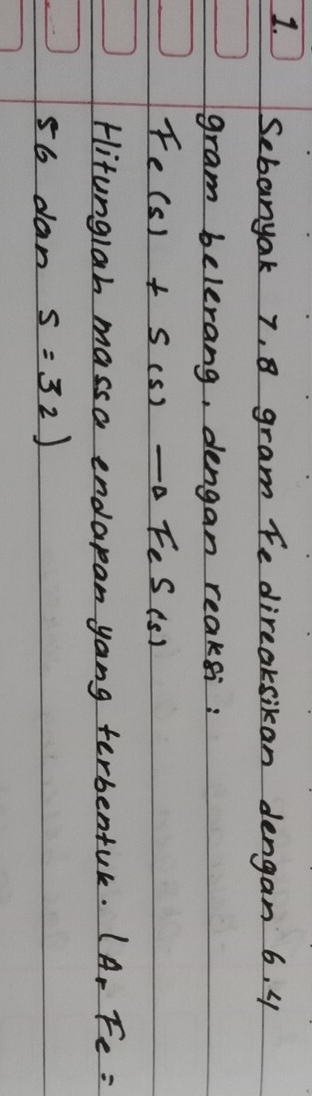 1. Sebanyak 7,8 gram Fe direaksikan dengan 6,4
gram belerang, dengan reaksi :
Fe (s) + S (s) → FeS (s)
Hitunglah massa endapan yang terbentuk. (Ar Fe =
56 dan S = 32)